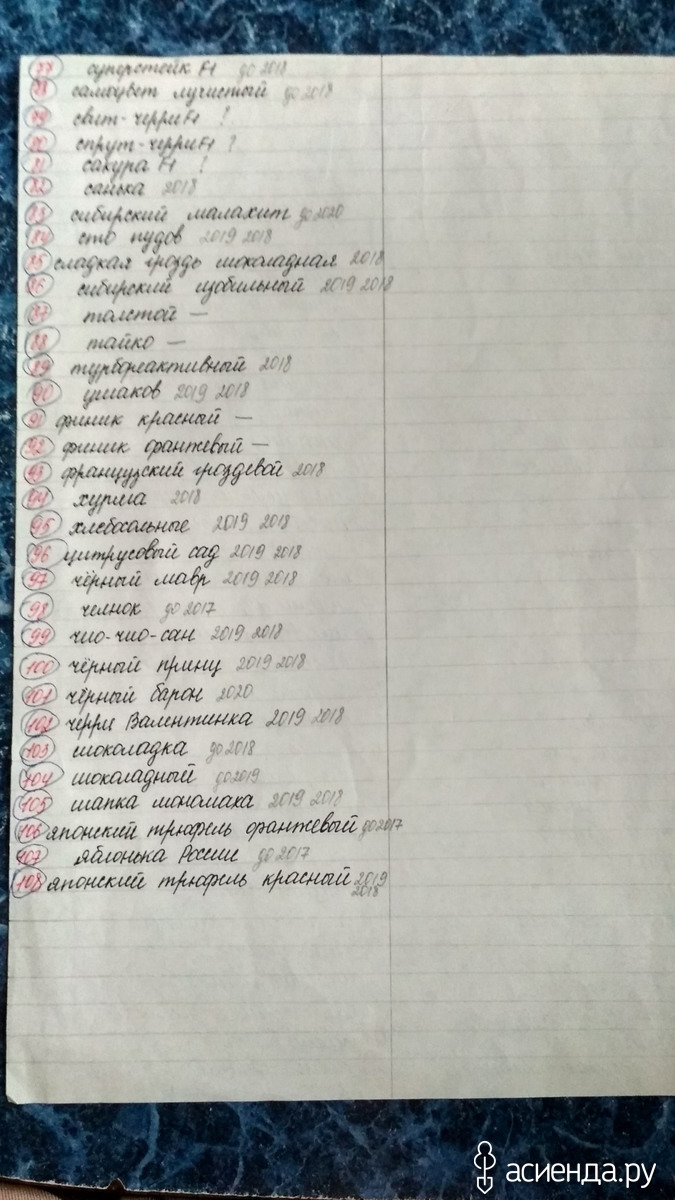 77 суперстейк F1 до 2018
78 самоцвет лучистый до 2018
79 свит-черри F1 ?
80 спрут-черри F1 ?
81 сакура F1 !
82 санька 2018
83 сибирский малахит до 2020
84 сто пудов 2019 2018
85 сладкая гроздь шоколадная 2018
86 сибирский изобильный 2019 2018
87 толстой —
88 тайко —
89 турбореактивный 2018
90 ушаков 2019 2018
91 финик красный —
92 финик оранжевый —
93 французский гроздевой 2018
94 хурма 2018
95 хлебосольные 2019 2018
96 цитрусовый сад 2019 2018
97 чёрный мавр 2019 2018
98 челнок до 2017
99 чио-чио-сан 2019 2018
100 чёрный принц 2019 2018
101 чёрный барон 2020
102 черри Валентинка 2019 2018
103 шоколадка до 2018
104 шоколадный до 2019
105 шапка мономаха 2019 2018
106 японский трюфель оранжевый до 2017
107 яблонька России до 2017
108 японский трюфель красный 2019
2018
асиенда.ру